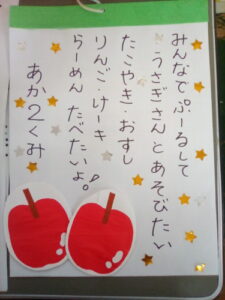 みんなでぷーるして
・うさぎさんとあそびたい
たこやき・おすし
りんご・けーき
らーめん たべたいよ。♪
あか2くみ